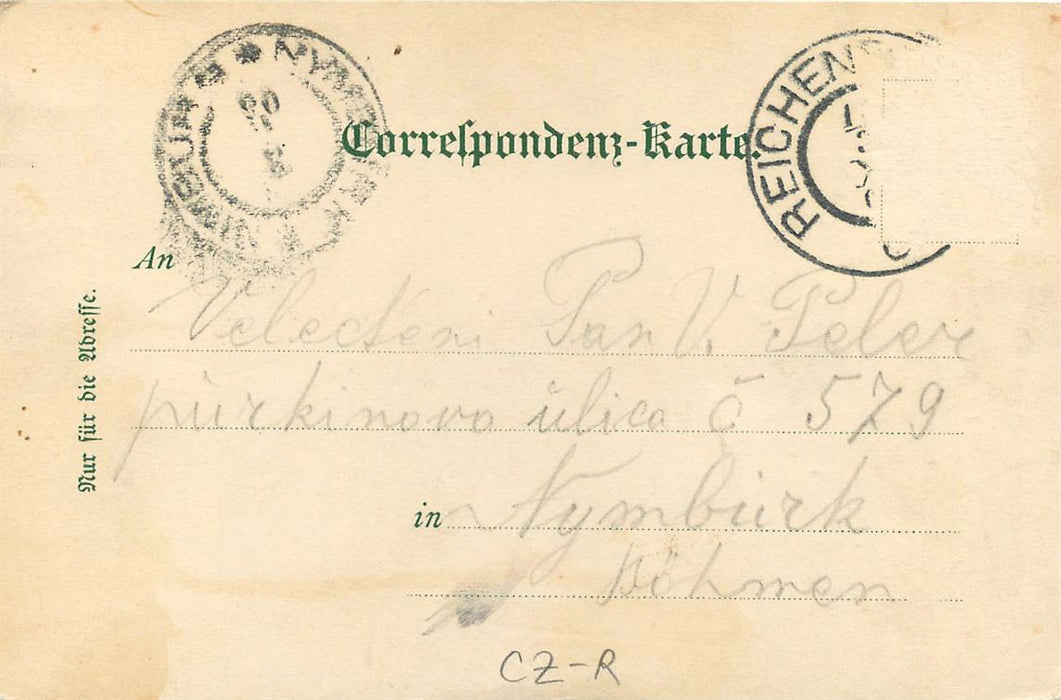 NYMBURK NIMBURG
Correspondenz-Karte.
REICHEN
An
Velecteni Pan V. Peler
purkinova ulica č 579
in Nymburk
Böhmen
Nur für die Adresse.
CZ-R